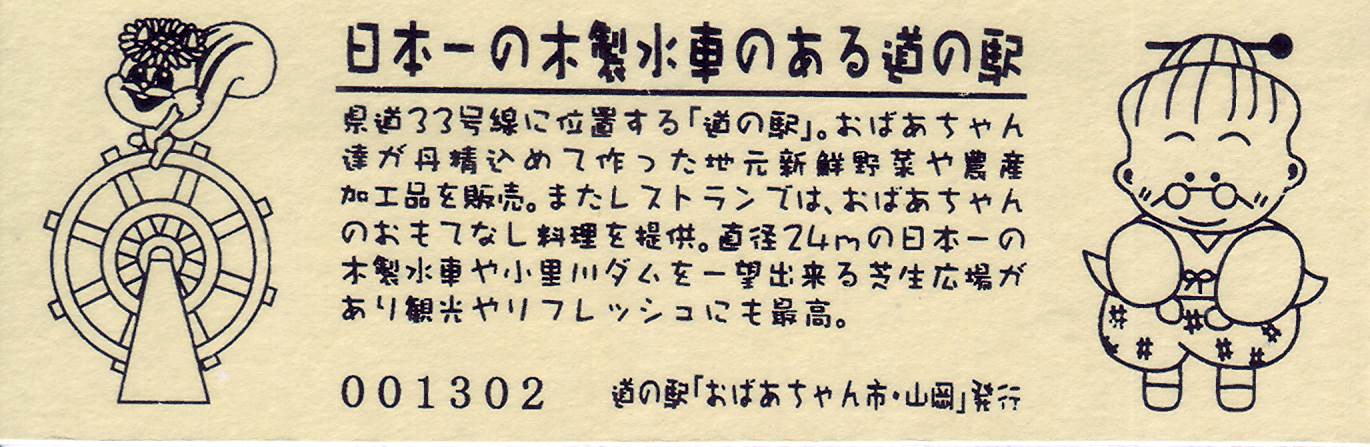 日本一の木製水車のある道の駅
県道33号線に位置する「道の駅」。おばあちゃん
達が丹精込めて作った地元新鮮野菜や農産
加工品を販売。またレストランでは、おばあちゃん
のおもてなし料理を提供。直径24mの日本一の
木製水車や小里川ダムを一望出来る芝生広場が
あり観光やリフレッシュにも最高。
001302 道の駅「おばあちゃん市・山岡」発行